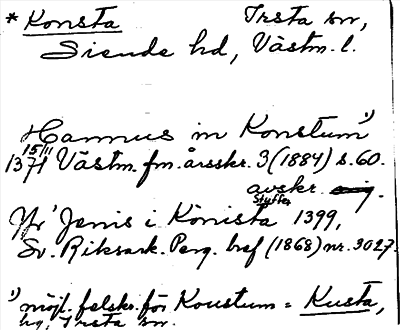 * Konsta Irsta sn,
Siende hd, Västm. l.
Hannus in Konstum¹⁾
15/11 1371 Västm. fm. årsskr. 3 (1884) s. 60.
avskr.
Styffe
Yr Jenis i Könista 1399,
Sv. Riksark. Perg. bref (1868) nr. 3027.
¹⁾ möjl. felskr. för Koustum = Kusta,
hg, Irsta sn.